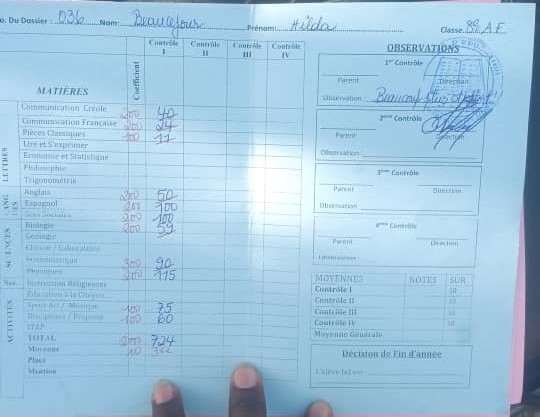 o. Du Dossier : 036 Nom: Beaucejour Prénom: Hilda Classe 8e A F
Coefficient Contrôle I Contrôle II Contrôle III Contrôle IV
MATIÈRES
LETTRES
Communication Créole 200 40
Communication Française 200 24
Pièces Classiques 100 11
Lire et S'exprimer
Economie et Statistique
Philosophie
Trigonométrie
Anglais 200 50
Espagnol 200 100
Sces Sociales 200 100
SCIENCES
Biologie 200 59
Géologie
Chimie / Laboratoire
Mathématique 300 90
Physique 200 115
Instruction Religieuses
Education à la Citoyen
ACTIVITÉS
Sport Art / Musique 100 75
Discipline / Propreté 100 60
ITAP
TOTAL 724
Moyenne 10
Place
Mention
OBSERVATIONS
1er Contrôle
Parent Direction
Observation: Beaucoup plus d'effort!!
2ème Contrôle
Parent Direction
Observation:
3ème Contrôle
Parent Direction
Observation:
4ème Contrôle
Parent Direction
Observation:
MOYENNES NOTES SUR
Contrôle I 10
Contrôle II 10
Contrôle III 10
Contrôle IV 10
Moyenne Générale
Décision de Fin d'année
L'élève (e) est :